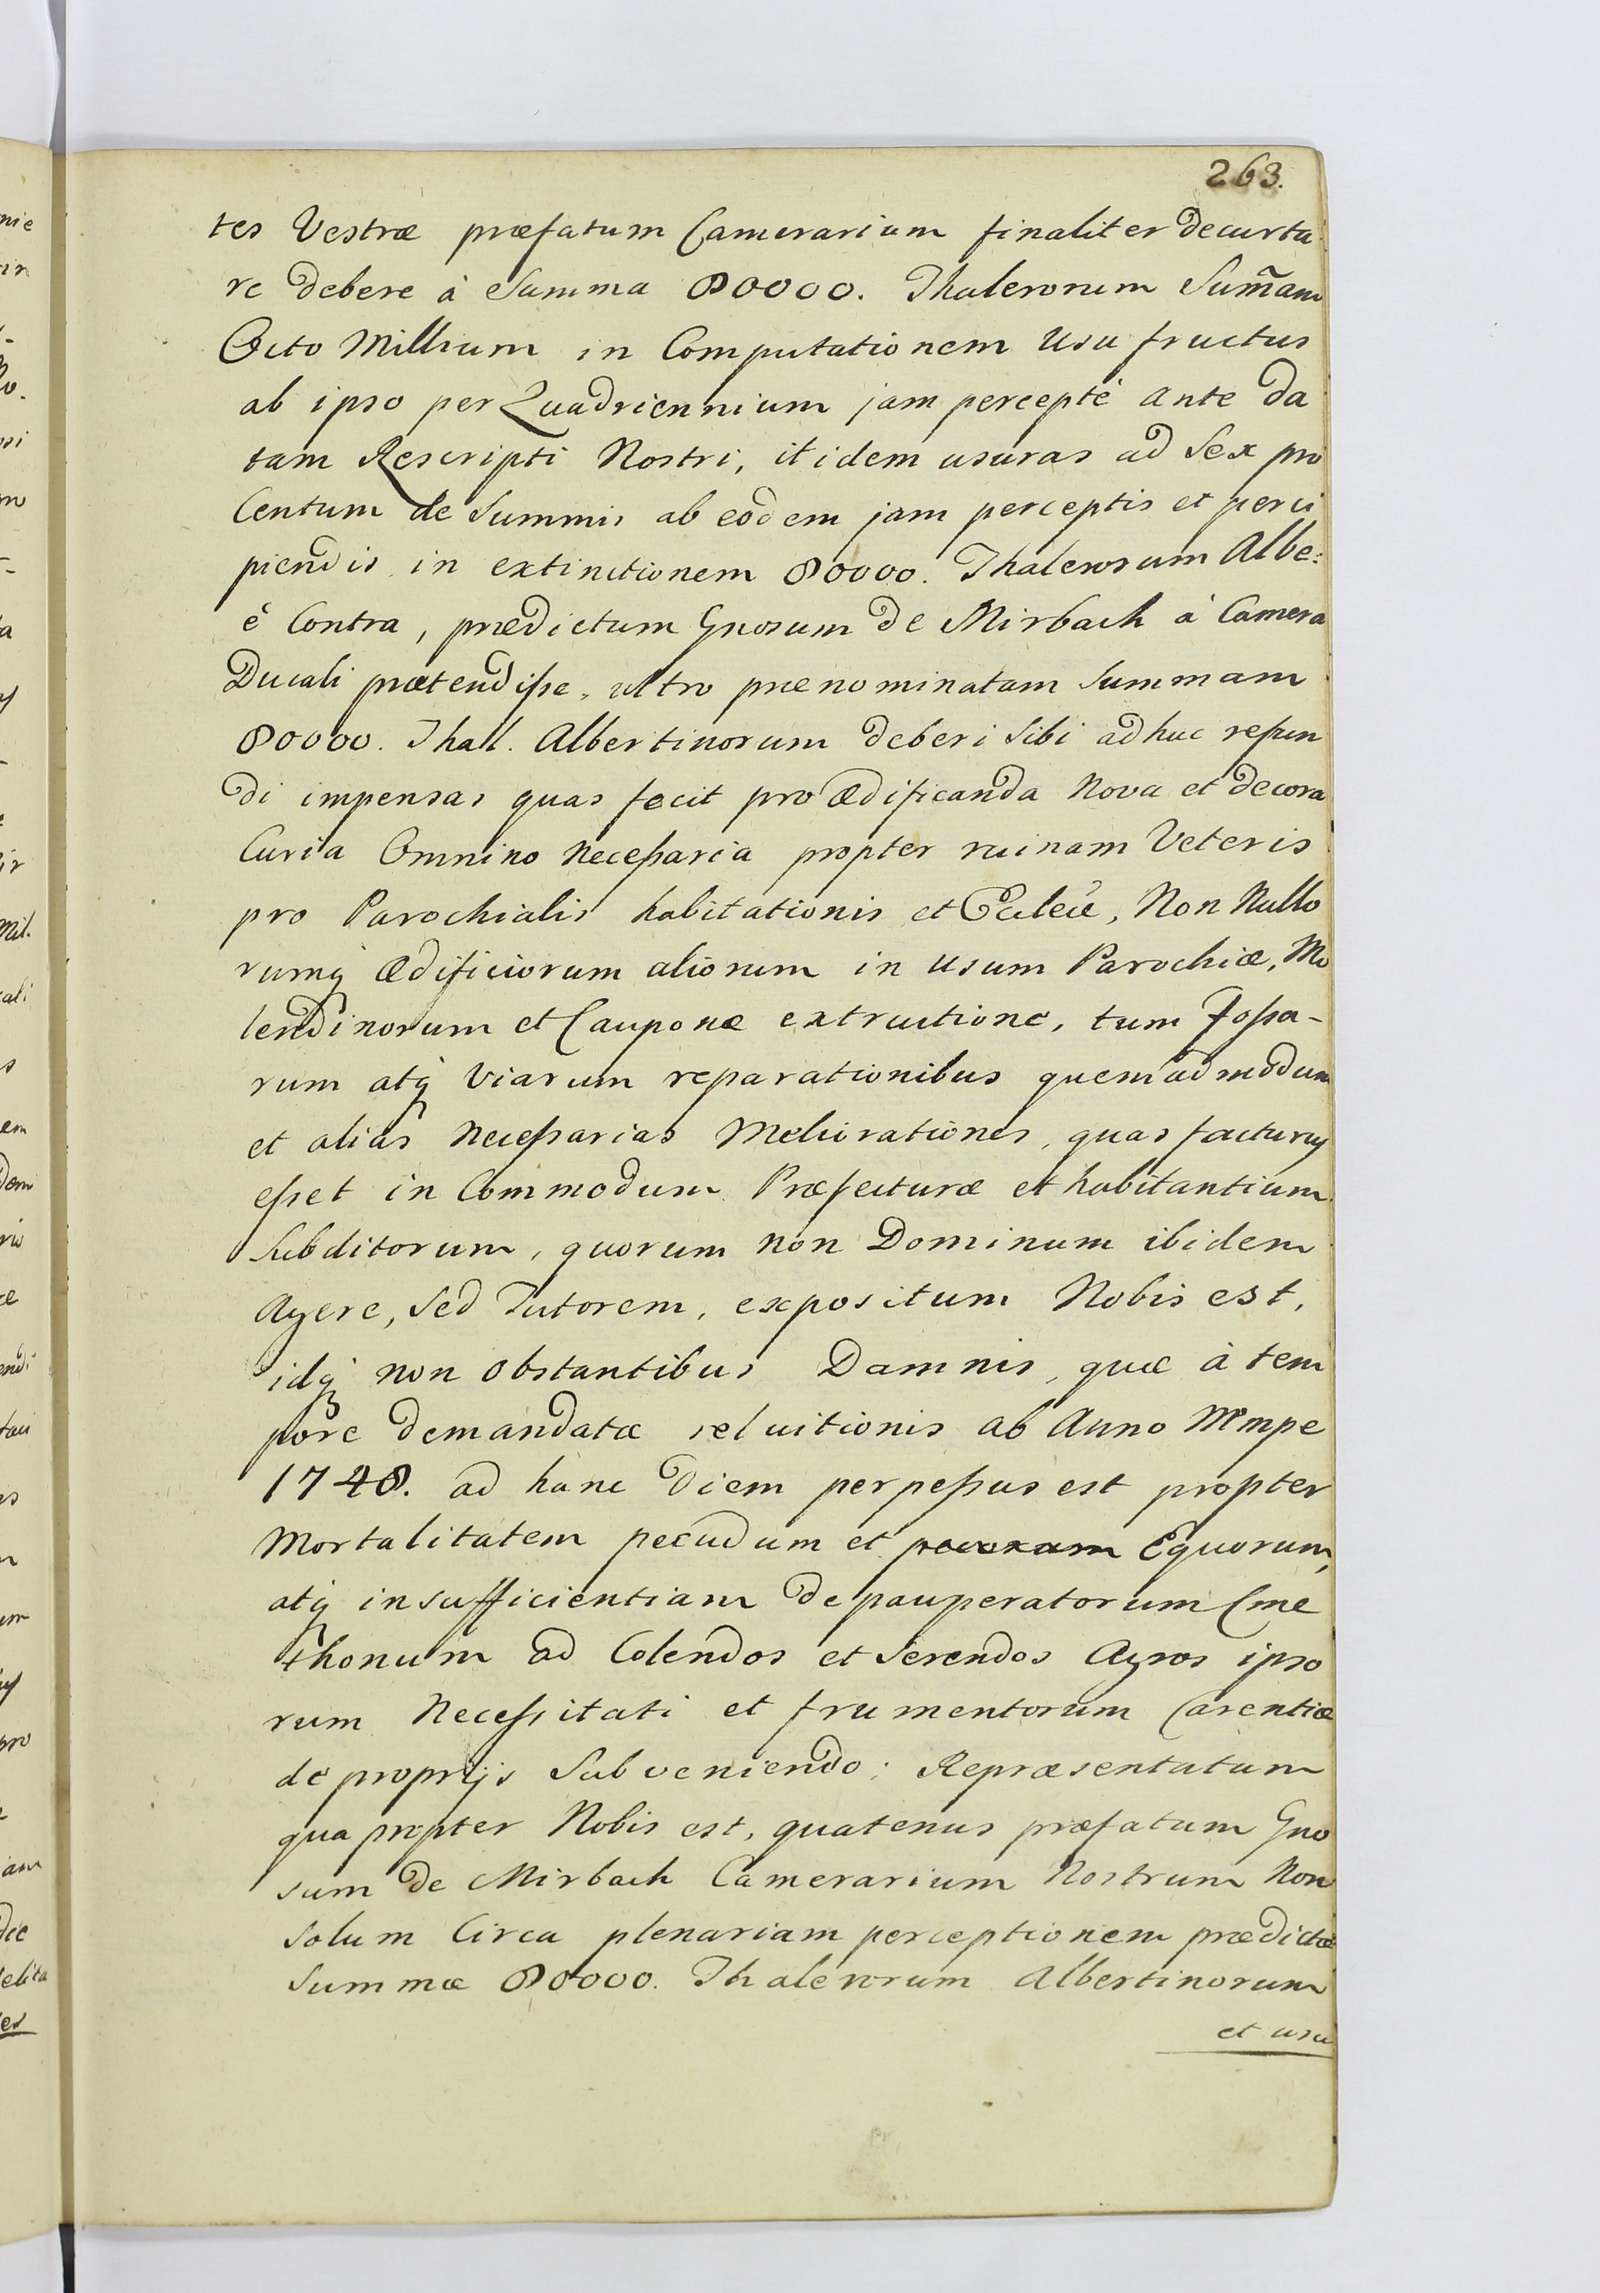 263.
tes Vestræ præfatum Camerarium finaliter decurta
re debere à Summa 80000. Thalerorum Sum̃am
Octo Millium in Computationem Usu fructus
ab ipso per Quadriennium jam percepté ante da
tam Rescripti Nostri, itidem usuras ad Sex pro
Centum de Summis ab eodem jam perceptis et perci
piendis in extinctionem 80000. Thalerorum Albe:
è Contra, prædictum Gnosum de Mirbach à Camera
Ducali prætendiſse, ultro prænominatam Summam
80000. Thal. Albertinorum deberi Sibi adhuc refun
di impensas quas fecit pro Ædificanda Nova et decora
Curia Omnino Neceſsaria propter ruinam Veteris
pro Parochialis habitationis et Eccleæ, Non Nullo
rumq̨ Ædificiorum aliorum in Usum Parochiæ, Mo
lendinorum et Cauponæ extructione, tum Foſsa-
rum atq̨ Viarum reparationibus quemadmodum
et alias Neceſsarias Meliorationes, quas facturus
eſset in Commodum Præfecturæ et habitantium
Subditorum, quorum non Dominum ibidem
Agere, Sed Tutorem, expositum Nobis est,
idq̨ non obstantibus Damnis, quæ à tem
pore demandatæ reluitionis ab Anno Mmpe
1748. ad hanc Diem perpeſsus est propter
Mortalitatem pecudum et pecorum Equorum,
atq̨ insufficientiam depauperatorum Cme
thonum ad Colendos et Serendos Agros ipso
rum Neceſsitati et frumentorum Carentiæ
de proprijs Subveniendo; Repræsentatum
qua propter Nobis est, quatenus præfatum Gno
sum de Mirbach Camerarium Nostrum Non
Solum Circa plenariam perceptionem prædictæ
Summæ 80000. Thalerorum Albertinorum
et usu